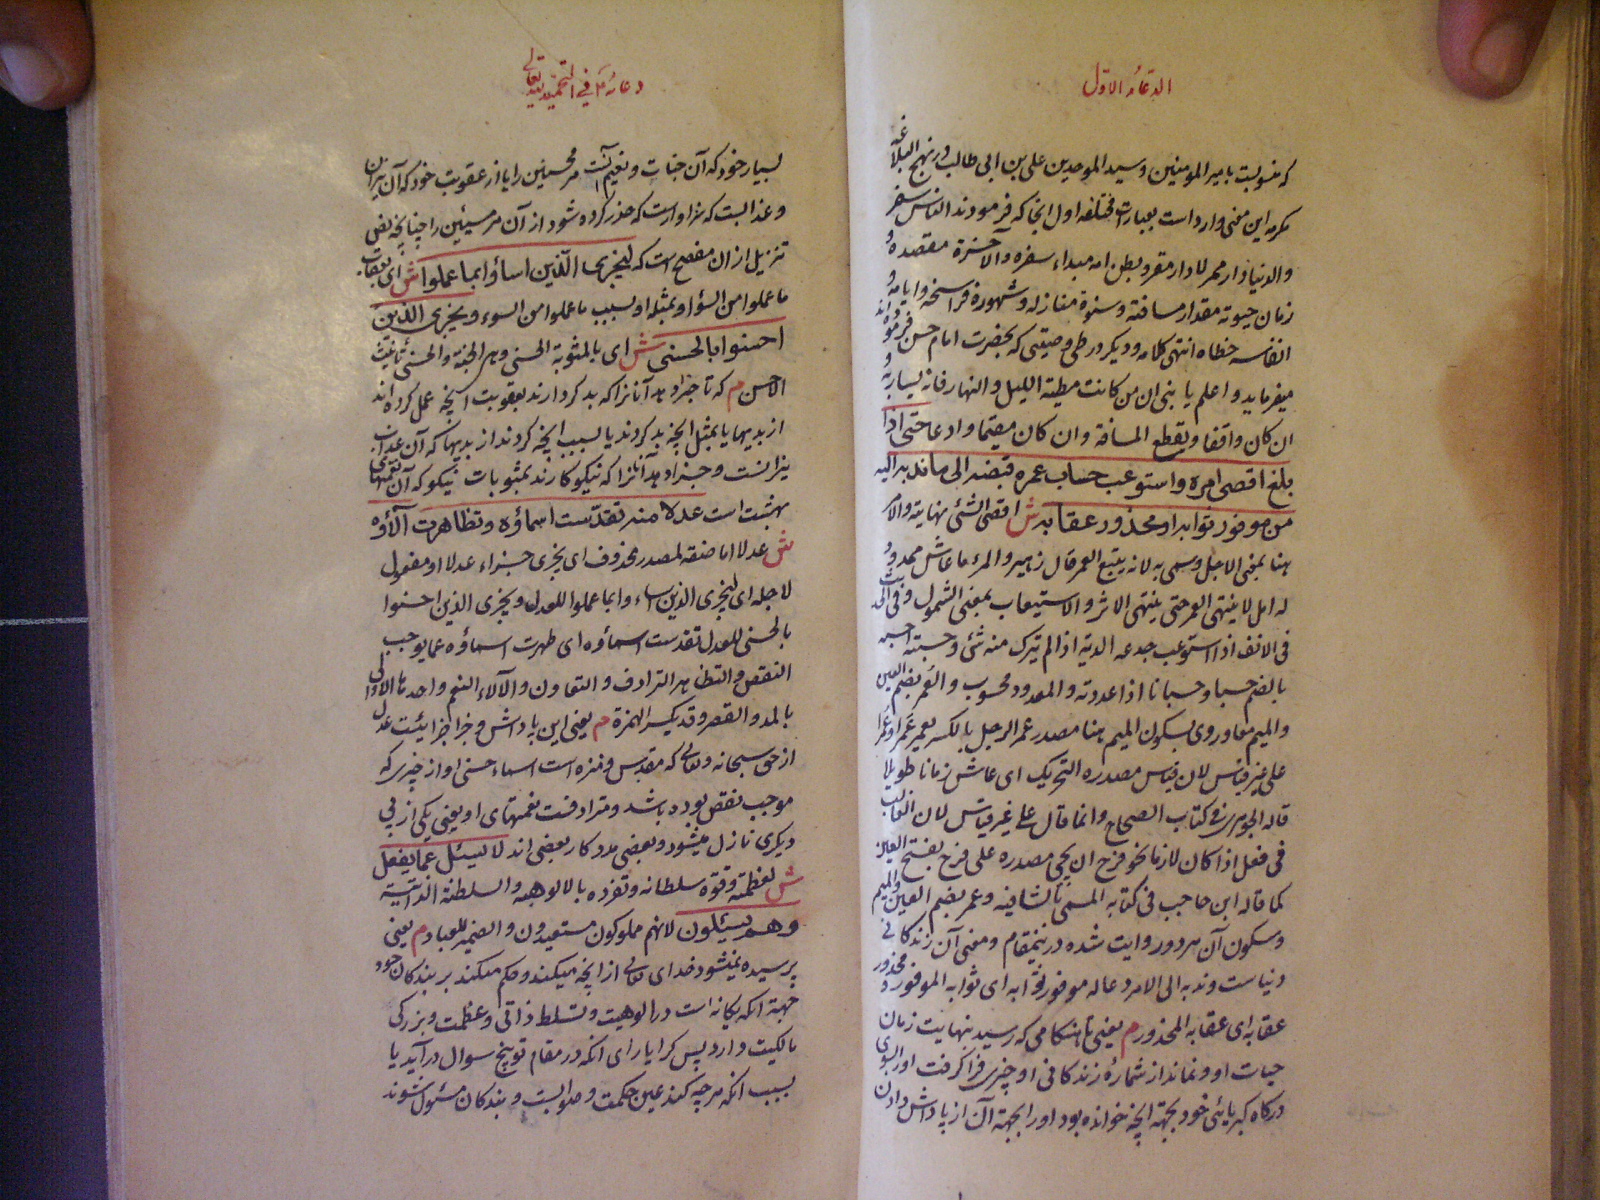 الدعاء الاول
که منسوبست بامیر المومنین و سید الموحدین علی بن ابی طالب در نهج البلاغه
مکرمه این معنی وارد است بعبارات مختلفه اول انجا که فرمودند الناس سفر
والدنیا دار ممر لا دار مقر و بطن امه مبداء سفره والآخرة مقصده و
زمان حیوته مقدار مسافته و سنوه منازله و شهوره فراسخه و ایامه و
انفاسه خطاه انتهی کلامه و دیکر در طی وصیتی که بحضرت امام حسن فرموده اند
میفرماید و اعلم یا بنی ان من کانت مطیته اللیل والنهار فانه یسار به و
ان کان واقفا و یقطع المسافة وان کان مقیما وادعا حتی اذا
بلغ اقصی اثره واستوعب حساب عمره قبضه الی ما ندبه الیه
من موفور ثوابه او محذور عقابه ش اقصی الشئ نهایته والاثر
هنا بمعنی الاجل و سمی به لانه یتبع العمر قال زهیر والمرء ما عاش ممدود
له امل لا ینتهی العمر حتی ینتهی الاثر والاستیعاب بمعنی الشمول وفی الحدیث
فی الانف اذا استوعب جدعه الدیة اذا لم یترک منه شئ و حسبته احسبه
بالضم حسبا و حسبانا اذا عددته والمعدود محسوب والعمر بضم العین
والمیم معا و روی بسکون المیم هنا مصدر عمر الرجل بالکسر یعمر عمرا و عمرا
علی غیر قیاس لان قیاس مصدره التحریک ای عاش زمانا طویلا
قاله الجوهری فی کتاب الصحاح وانما قال علی غیر قیاس لان الغالب
فی فعل اذا کان لازما نحو فرح ان یجی مصدره علی فرح بفتح العین
کما قاله ابن حاجب فی کتابه المسمی بالشافیه و عمر بضم العین والمیم
و سکون آن هر دو روایت شده در ینمقام و معنی آن زندکانی
دنیاست و ندبه الی الامر دعا له موفور ثوابه ای ثوابه الموفور و محذور
عقابه ای عقابه المحذور م یعنی تا هنکامی که رسید بنهایت زمان
حیات او و نماند از شمارهٔ زندکانی او چیزی فرا کرفت او را بسوی
درکاه کبریائی خود بجهة آنچه خوانده بود او را بجهة آن از پاداش دادن
دعائه ع فی التحمید لله تعالی
بسیار خود که آن جنات و نعیم آنست مر محسنین را یا از عقوبت خود که آن نیران
و عذابست که سزاوارست که حذر کرده شود از آن مر مسیئین را چنانچه نص
تنزیل از ان مفصح است که لیجزی الذین اساؤا بما عملوا ش ای بعقاب
ما عملوا من السوء او بمثله او بسبب ما عملوا من السوء و یجزی الذین
احسنوا بالحسنی ش ای بالمثوبة الحسنی و هی الجنة والحسنی تانیث
الاحسن م که تا جزا دهد آنانرا که بد کردارند بعقوبت آنچه عمل کرده اند
از بدیها یا بمثل آنچه بد کردند یا بسبب آنچه کردند از بدیها که آن عذاب
نیرانست و جزا دهد آنانرا که نیکو کارند بمثوبات نیکو که آن نعمتهای
بهشت است عدلا منه تقدست اسماؤه و تظاهرت آلاؤه
ش عدلا اما صفة لمصدر محذوف ای یجزی جزاء عدلا او مفعول
لاجله ای لیجزی الذین اساءوا بما عملوا للعدل و یجزی الذین احسنوا
بالحسنی للعدل تقدست اسماؤه ای طهرت اسماؤه عما یوجب
النقص والتظاهر الترادف والتعاون والآلاء النعم واحدها الالی
بالمد والقصر وقد یکسر الهمزة م یعنی این پاداش و جزا جزائیست عدل
از حق سبحانه و تعالی که مقدس و منزه است اسماء حسنی او از چیزی که
موجب نقص بوده باشد و مترادفست نعمتهای او یعنی یکی از پی
دیکری نازل میشود و بعضی مددکار بعضی اند لا یسئل عما یفعل
ش لعظمته و قوة سلطانه و تفرده بالالوهیه والسلطنة الذاتیة
وهم یسئلون لانهم مملوکون مستعبدون والضمیر للعباد م یعنی
پرسیده نمیشود خدای تعالی از آنچه میکند و حکم میکند بر بندکان خود
جهة آنکه یکانه است در الوهیت و تسلط ذاتی و عظمت و بزرکی
مالکیت دارد پس کرا یارای آنکه در مقام توبیخ سوال در آید یا
بسبب آنکه هر چه کند عین حکمت و صوابست و بندکان مسئول شوند